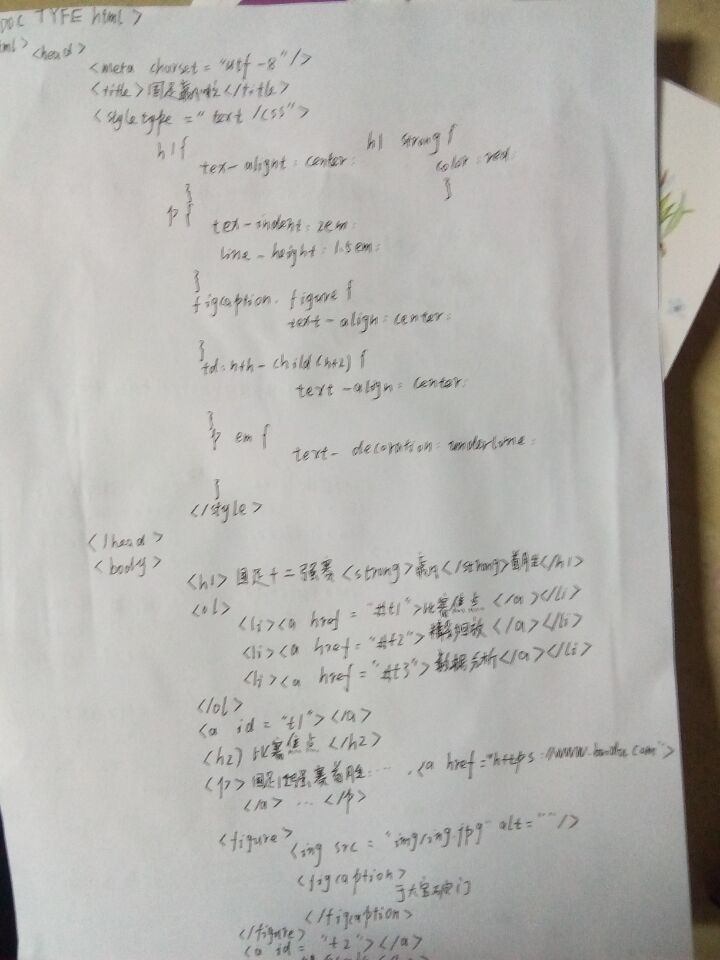 DOC TYFE html>
tml> <head>
<meta charset="utf-8"/>
<title>国足赢</title>
<style type="text/css">
h1{ h1 strong{
tex-alight:center; color:red;
} }
p{
tex-indent:2em;
line-height:1.5em;
}
figcaption.figure{
text-align:center;
}
td:nth-child(n+2){
text-align:center;
}
p em{
text-decoration:underline;
}
</style>
</head>
<body>
<h1>国足十二强赛<strong></strong>首胜</h1>
<ol>
<li><a href="#t1">比赛焦点</a></li>
<li><a href="#t2">精彩回放</a></li>
<li><a href="#t3">数据分析</a></li>
</ol>
<a id="t1"></a>
<h2)比赛焦点</h2>
<p>国足12强赛首胜…….<a href="https://www.baidu.com">
</a>…</p>
<figure> <ing src="img/ing.jpg" alt=""/>
<figcaption>
于大宝
</figcaption>
</figure>
<a id="t2"></a>